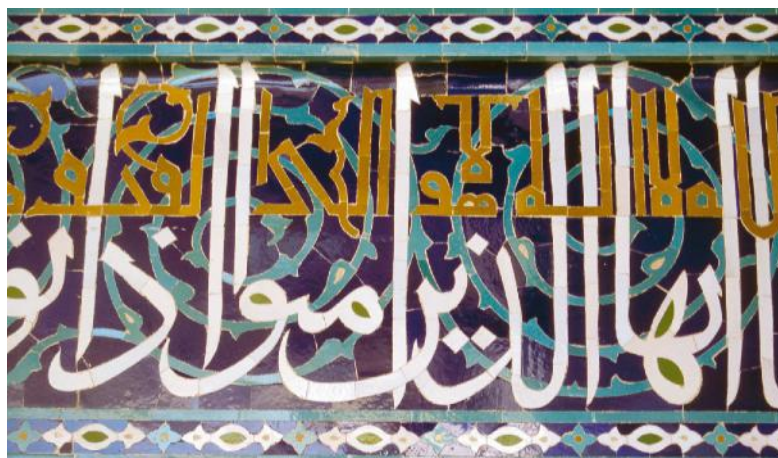 الله لا اله الا هو الحى القيوم
ايها الذين امنوا اذا